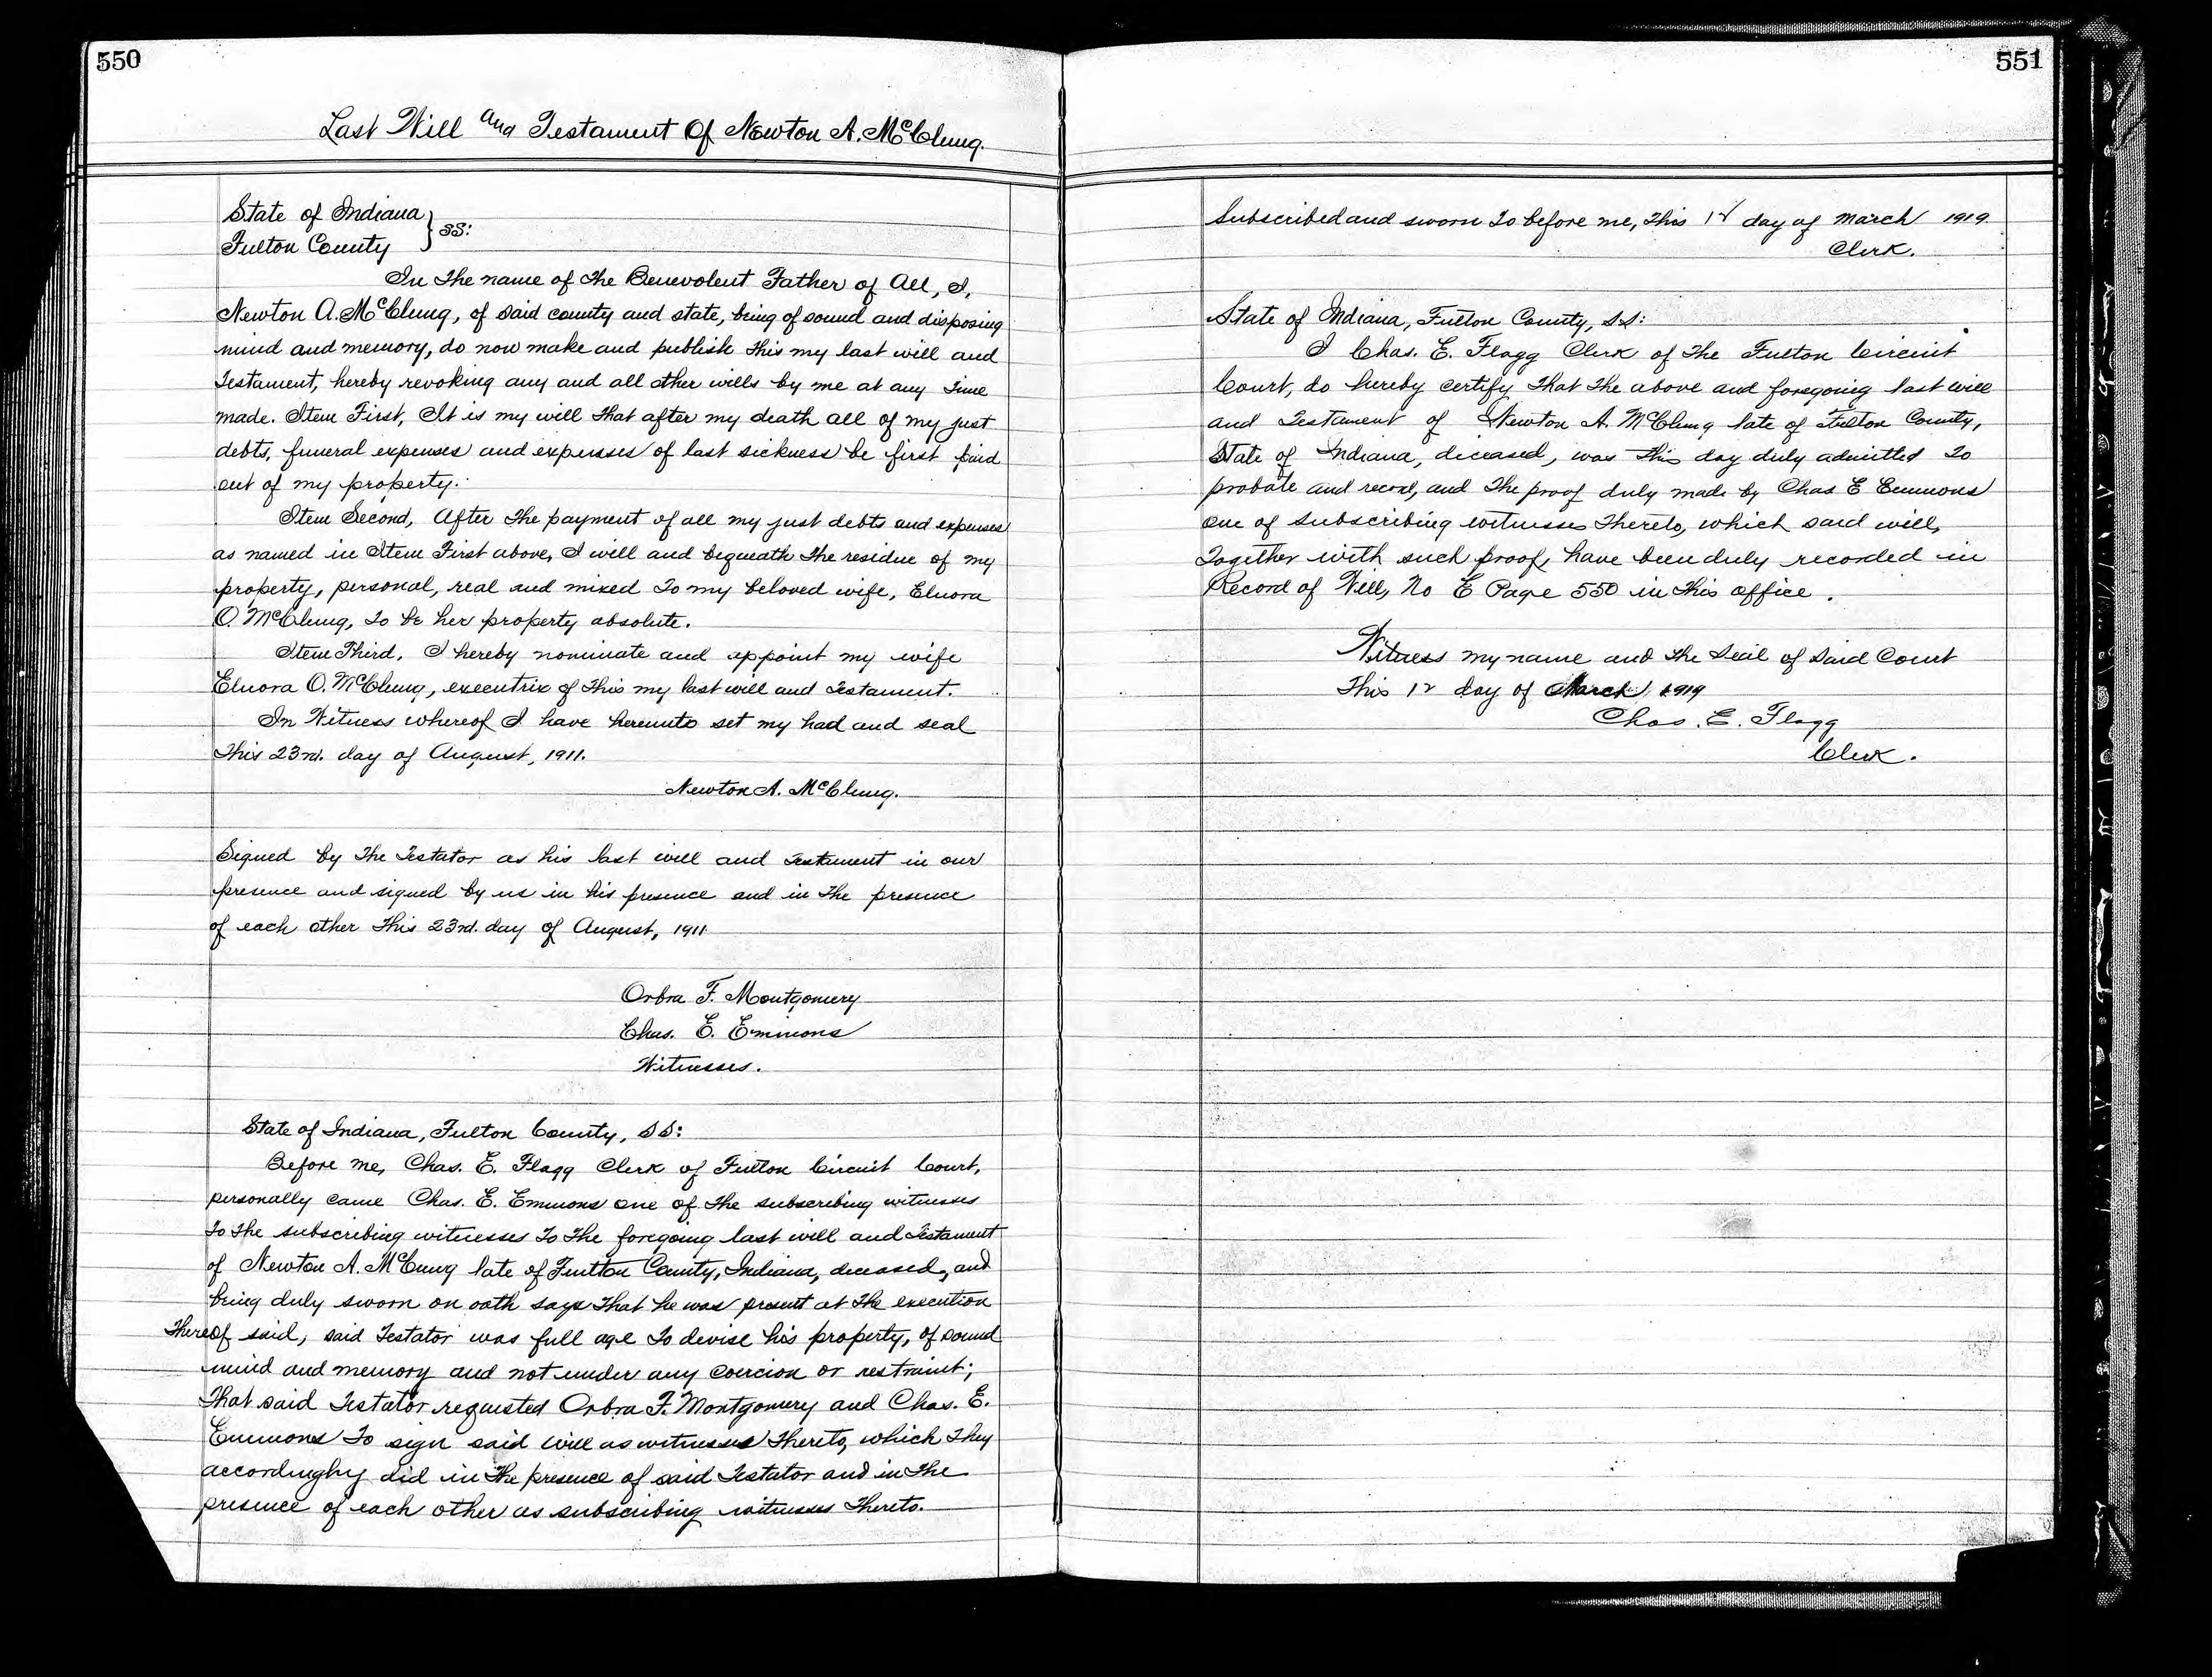 550
Last Will and Testament Of Newton A. McClung.
State of Indiana } SS:
Fulton County
In the name of the Benevolent Father of All, I,
Newton A. McClung, of said county and state, being of sound and disposing
mind and memory, do now make and publish this my last will and
Testament, hereby revoking any and all other wills by me at any time
made. Item First, It is my will that after my death all of my just
debts, funeral expenses and expenses of last sickness be first paid
out of my property.
Item Second, After the payment of all my just debts and expenses
as named in Item First above, I will and bequeath the residue of my
property, personal, real and mixed to my beloved wife, Elnora
O. McClung, to be her property absolute.
Item Third. I hereby nominate and appoint my wife
Elnora O. McClung, executrix of this my last will and testament.
In Witness whereof I have hereunto set my had and seal
this 23rd. day of August, 1911.
Newton A. McClung.
Signed by the Testator as his last will and testament in our
presence and signed by us in his presence and in the presence
of each other this 23rd. day of August, 1911
Orbra F. Montgomery
Chas. E. Emmons
Witnesses.
State of Indiana, Fulton County, SS:
Before me, Chas. E. Flagg Clerk of Fulton Circuit Court,
personally came Chas. E. Emmons one of the subscribing witnesses
to the subscribing witnesses to the foregoing last will and Testament
of Newton A. McClung late of Fultton County, Indiana, deceased, and
being duly sworn on oath says that he was present at the execution
thereof said, said Testator was full age to devise his property, of sound
mind and memory and not under any coercion or restraint;
that said Testator requested Orbra F. Montgomery and Chas. E.
Emmons to sign said will as witnesses thereto, which they
accordinghy did in the presence of said Testator and in the
presence of each other as subscribing witnesses thereto.
551
Subscribed and sworn to before me, this 12 day of March 1919
Clerk.
State of Indiana, Fulton County, SS:
I Chas. E. Flagg Clerk of the Fulton Circuit
Court, do hereby certify that the above and foregoing last will
and Testament of Newton A. McClung late of Fulton County,
State of Indiana, diceased, was this day duly admitted to
probate and record, and the proof duly made by Chas E Emmons
one of subscribing witnesses thereto, which said will,
together with such proof, have been duly recorded in
Record of Will, No E Page 550 in this office.
Witness my name and the Seal of said Court
this 12 day of March, 1919
Chas. E. Flagg
Clerk.